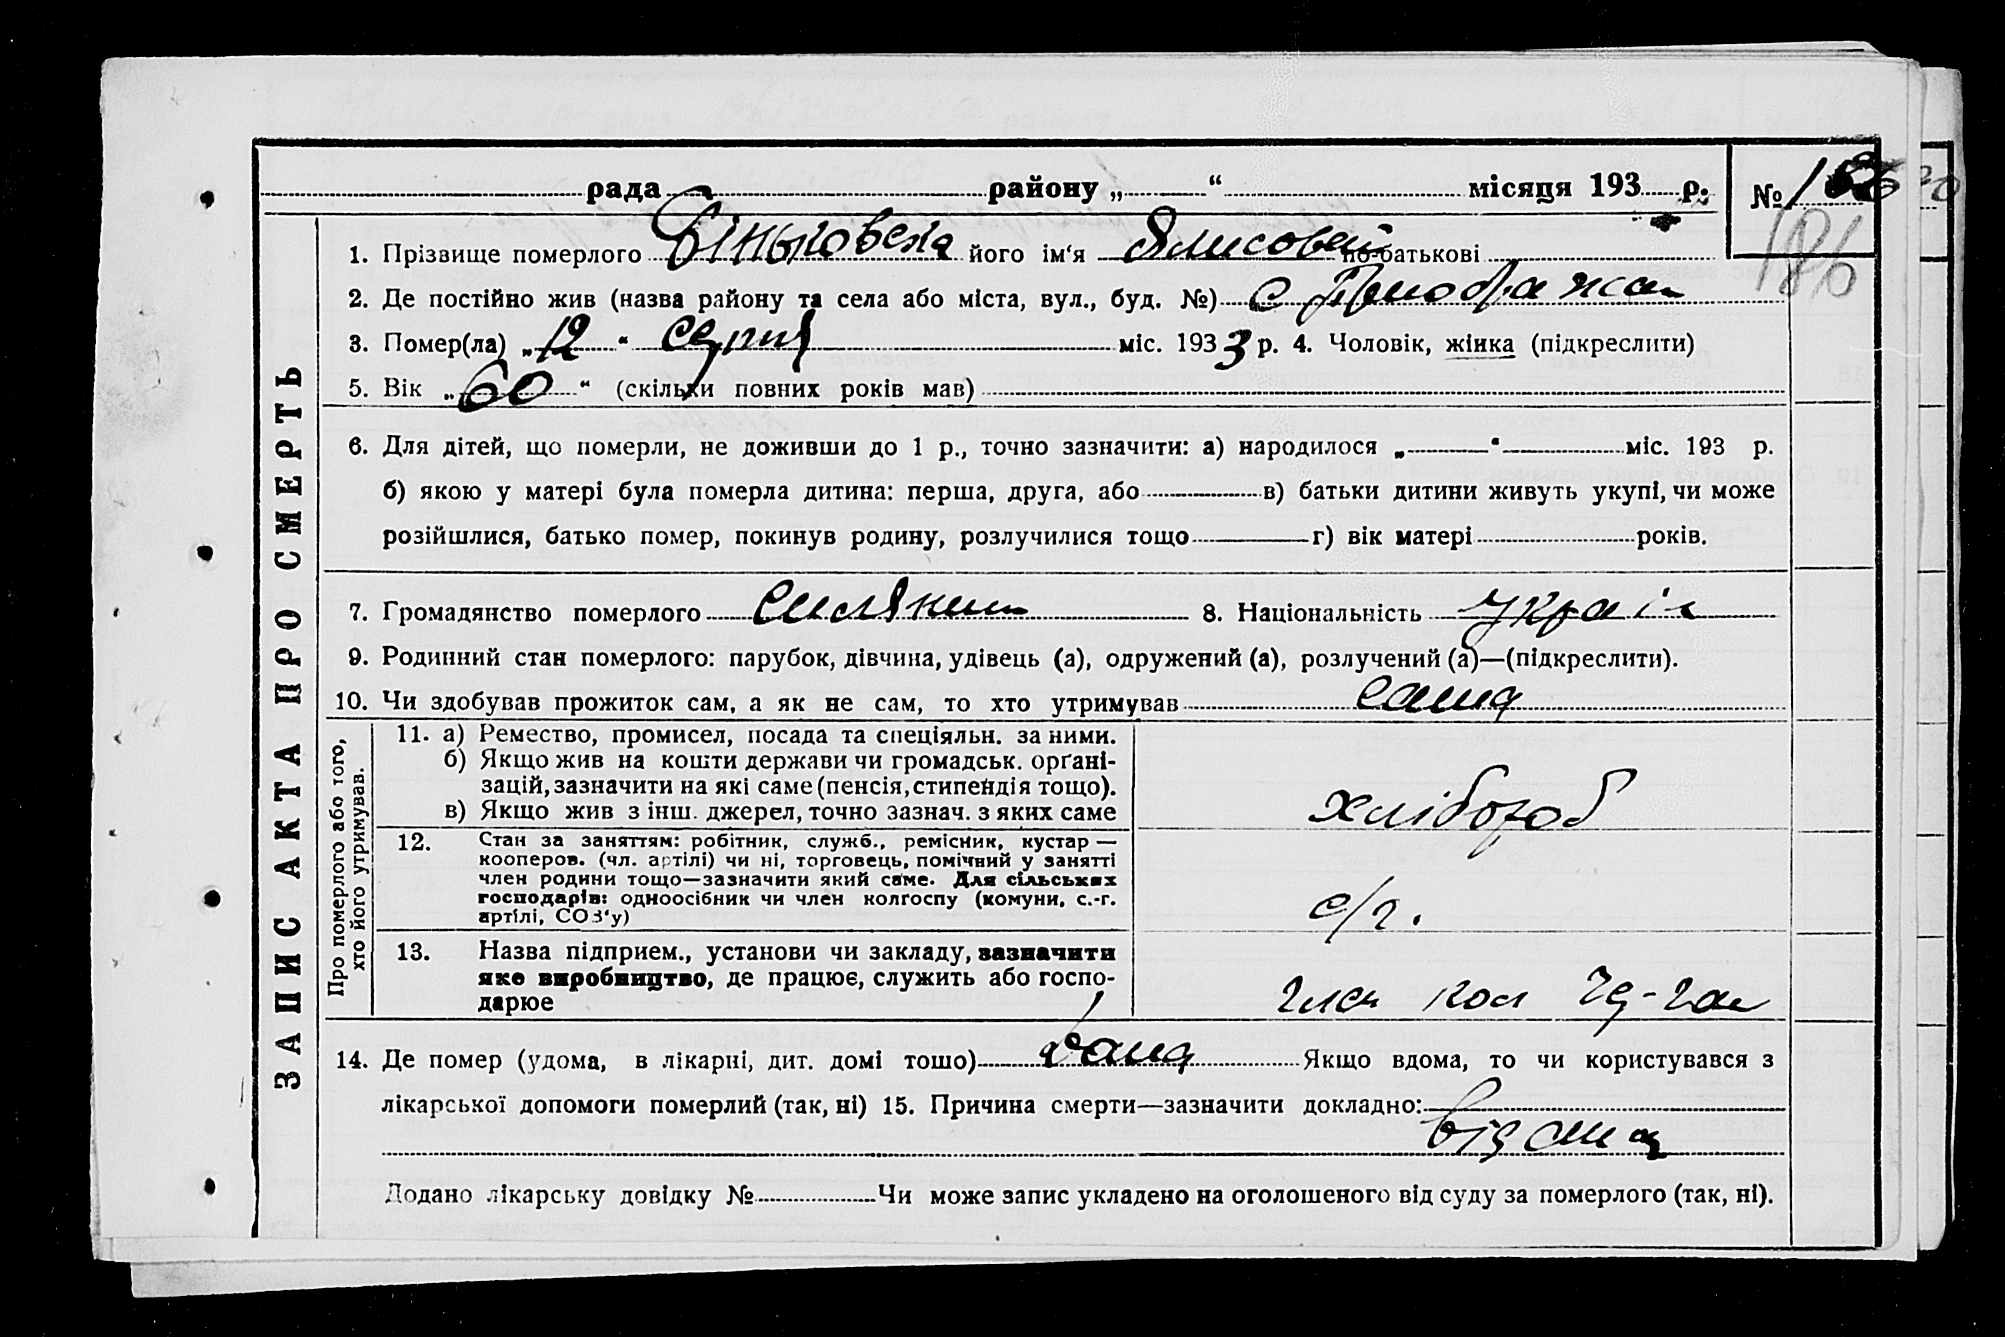 рада району „ “ місяця 193 р.
№ 1
186
ЗАПИС АКТА ПРО СМЕРТЬ
1. Прізвище померлого його ім‘я по-батькові
2. Де постійно жив (назва району та села або міста, вул., буд. №) с
3. Помер(ла) „ 12 “ серпня міс. 1933 р. 4. Чоловік, жінка (підкреслити)
5. Вік „ 60 “ (скільки повних років мав)
6. Для дітей, що померли, не доживши до 1 р., точно зазначити: а) народилося „ “ міс. 193 р.
б) якою у матері була померла дитина: перша, друга, або в) батьки дитини живуть укупі, чи може
розійшлися, батько помер, покинув родину, розлучилися тощо г) вік матері років.
7. Громадянство померлого 8. Національність україн
9. Родинний стан померлого: парубок, дівчина, удівець (а), одружений (а), розлучений (а)—(підкреслити).
10. Чи здобував прожиток сам, а як не сам, то хто утримував сама
Про померлого або того,
хто його утримував.
11. а) Ремество, промисел, посада та спеціяльн. за ними.
б) Якщо жив на кошти держави чи громадськ. орґані-
зацій, зазначити на які саме (пенсія, стипендія тощо).
в) Якщо жив з інш. джерел, точно зазнач. з яких саме
хлібороб
12. Стан за заняттям: робітник, служб., ремісник, кустар —
кооперов. (чл. артілі) чи ні, торговець, помічний у занятті
член родини тощо—зазначити який саме. Для сільських
господарів: одноосібник чи член колгоспу (комуни, с.-г.
артілі, СОЗ‘у)
с/г.
13. Назва підприєм., установи чи закладу, зазначити
яке виробництво, де працює, служить або госпо-
дарює
член кол
14. Де помер (удома, в лікарні, дит. домі тощо) дома Якщо вдома, то чи користувався з
лікарської допомоги померлий (так, ні) 15. Причина смерти—зазначити докладно:
Додано лікарську довідку № Чи може запис укладено на оголошеного від суду за померлого (так, ні).